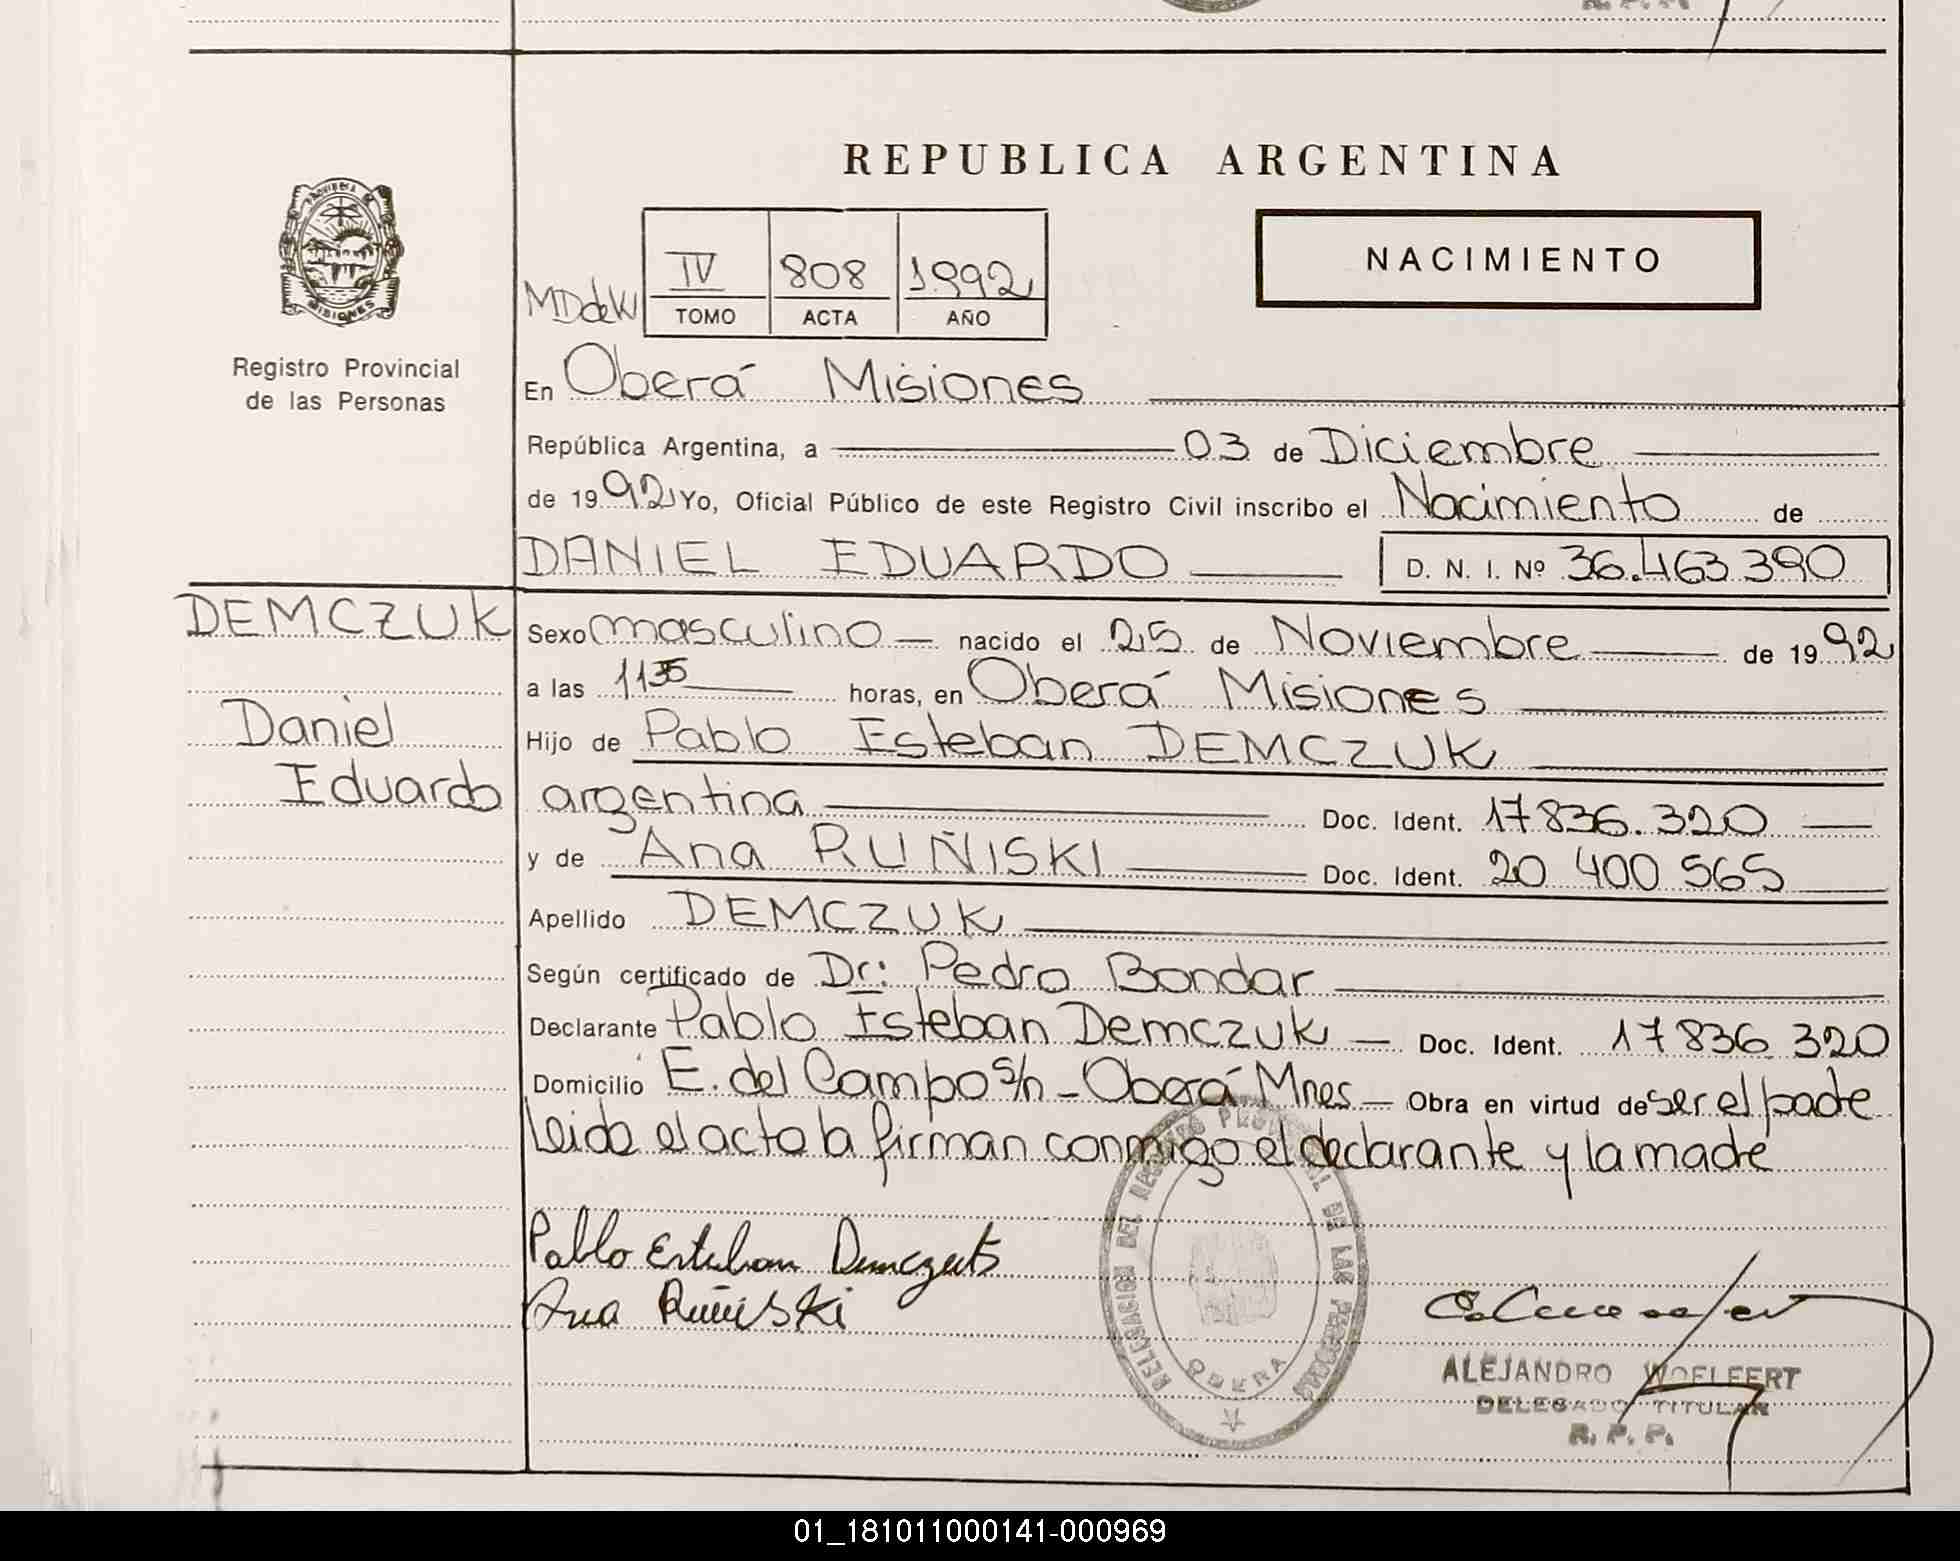 REPUBLICA ARGENTINA
PROVINCIA
MISIONES
Registro Provincial
de las Personas
NACIMIENTO
MDdeK
IV 808 1992
TOMO ACTA AÑO
En Oberá Misiones
República Argentina, a 03 de Diciembre
de 1992 Yo, Oficial Público de este Registro Civil inscribo el Nacimiento de
DANIEL EDUARDO D. N. I. Nº 36.463.390
DEMCZUK
Daniel
Eduardo
Sexo masculino nacido el 25 de Noviembre de 1992
a las 1135 horas, en Oberá Misiones
Hijo de Pablo Esteban DEMCZUK
argentina Doc. Ident. 17836.320
y de Ana RUÑISKI Doc. Ident. 20 400 565
Apellido DEMCZUK
Según certificado de Dr: Pedro Bondar
Declarante Pablo Esteban Demczuk Doc. Ident. 17836.320
Domicilio E. del Campo s/n - Oberá Mnes - Obra en virtud de ser el padre
Leida el acta la firman conmigo el declarante y la madre
Pablo Esteban Demczuk
Ana Ruñiski
DELEGACION DEL REGISTRO PROVINCIAL DE LAS PERSONAS
OBERA
ALEJANDRO WOELFERT
DELEGADO TITULAR
R. P. P.
01_181011000141-000969